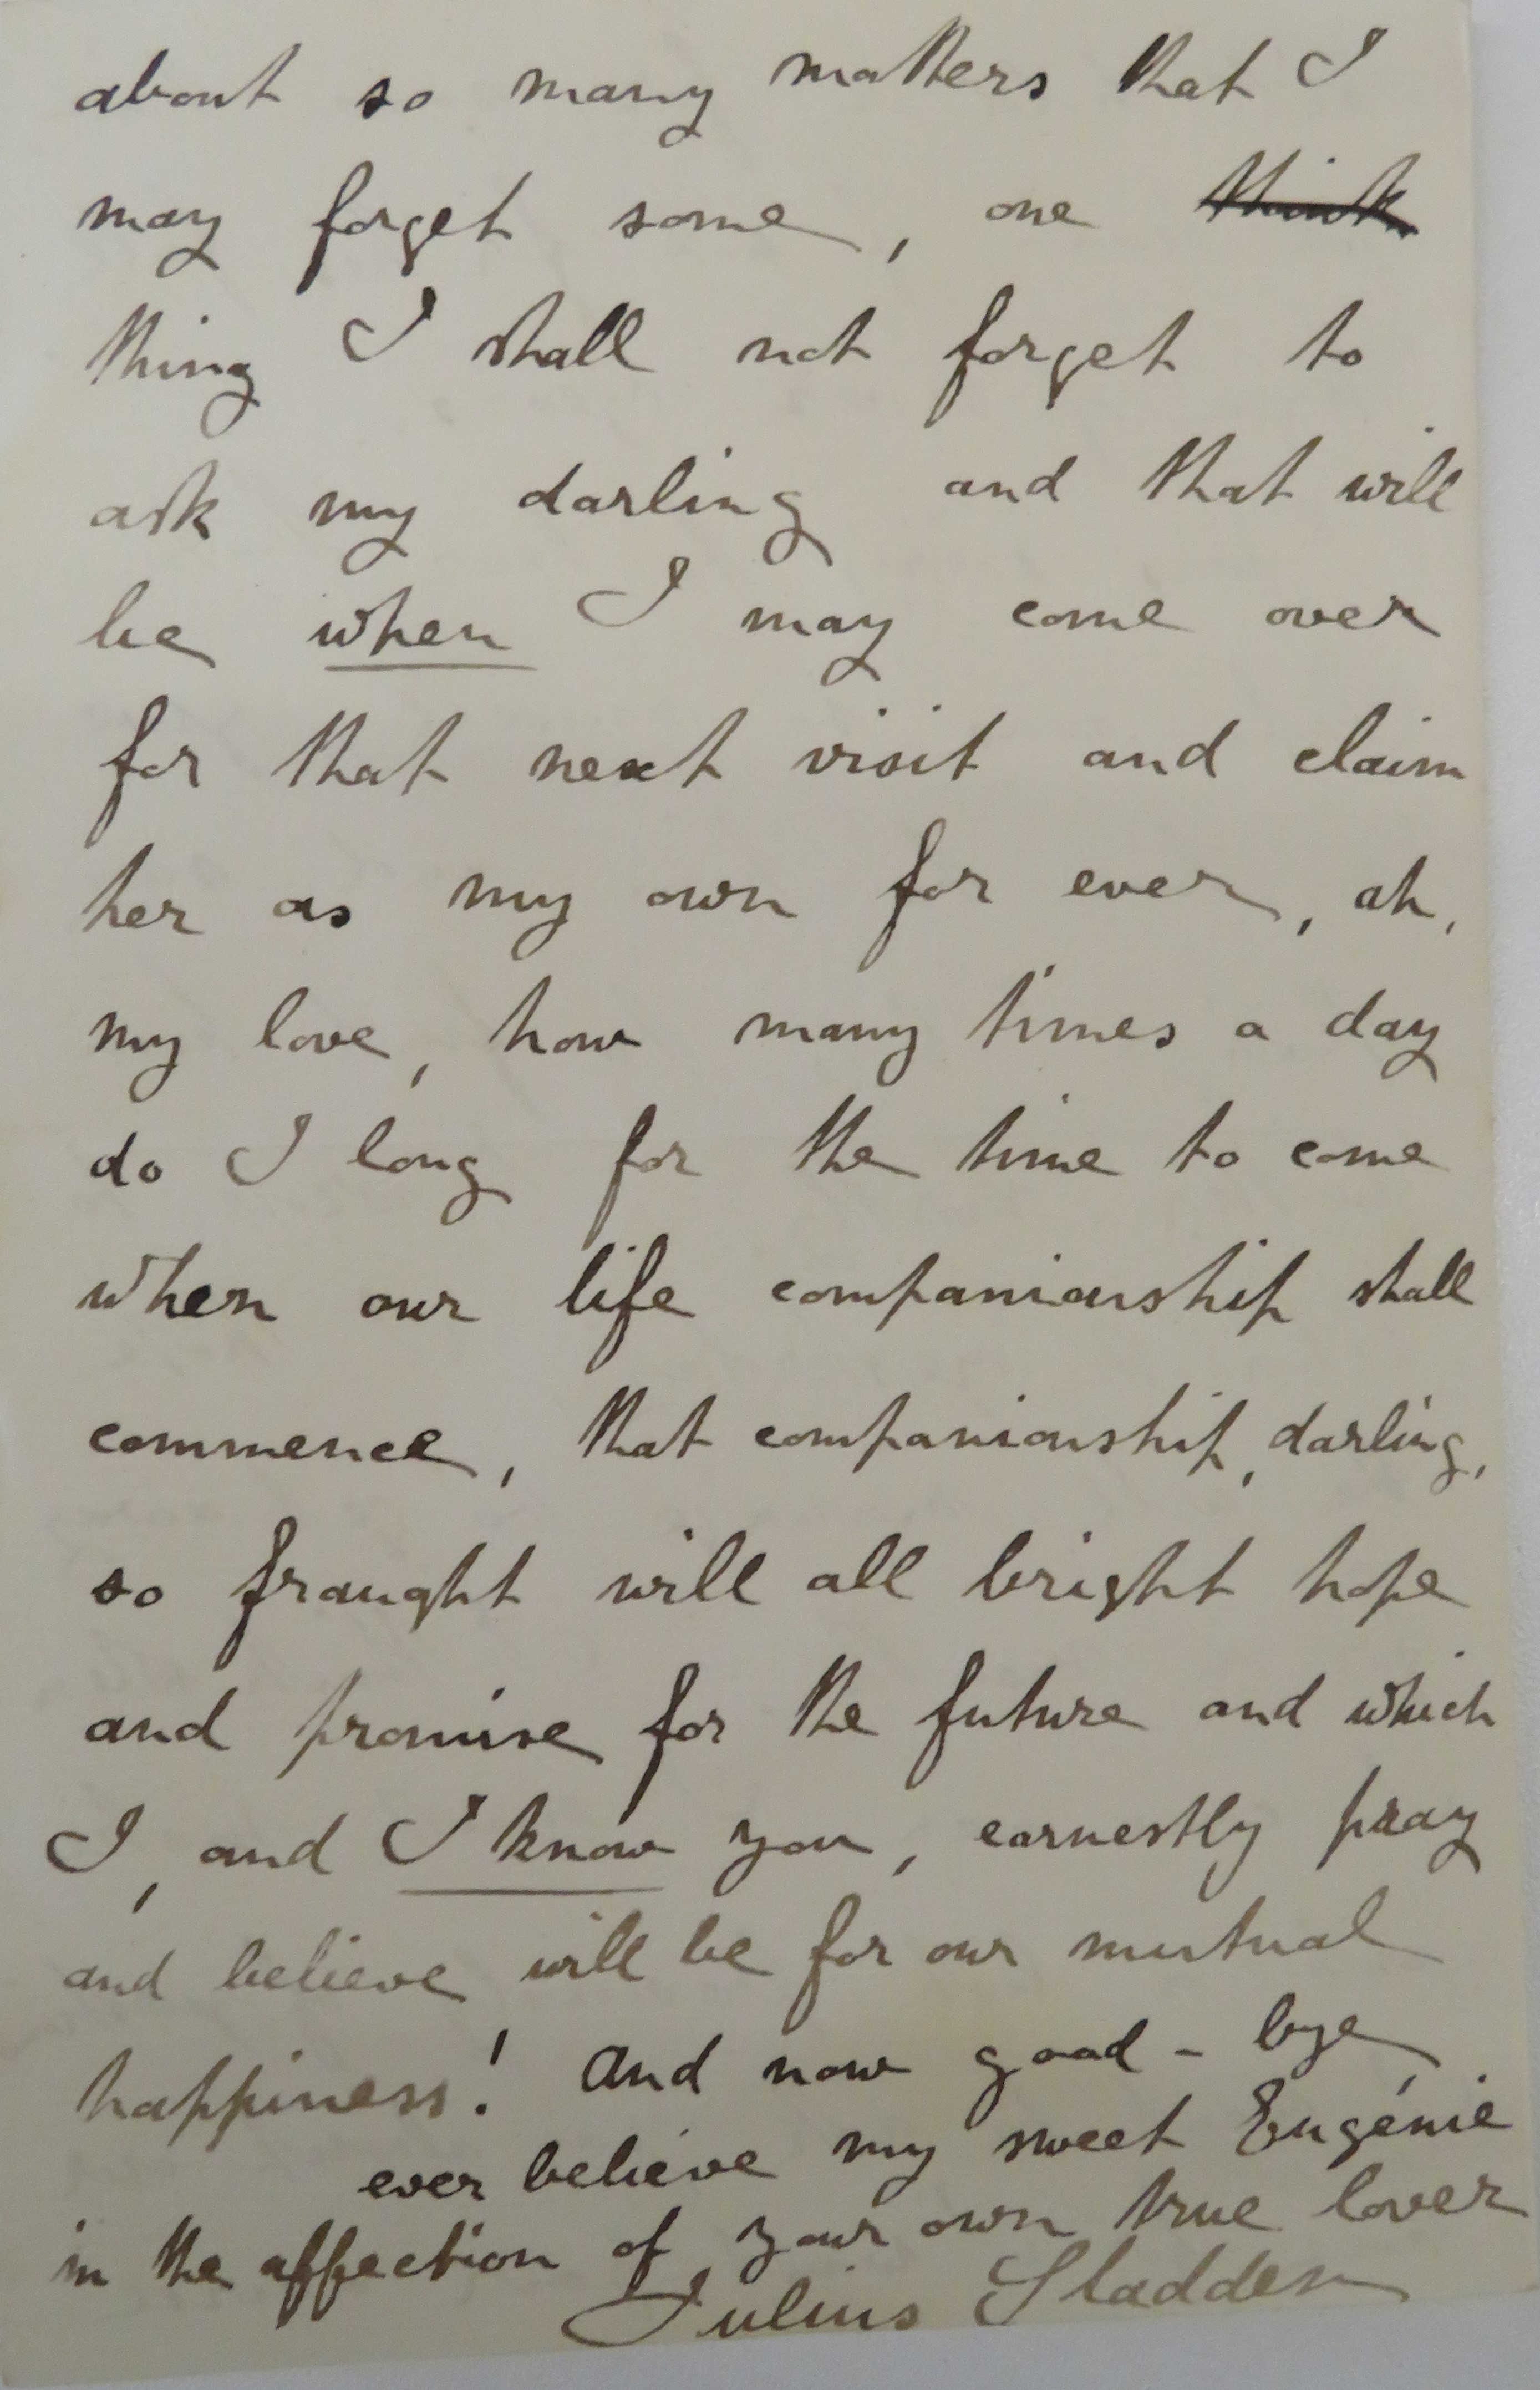 about so many matters that I
may forget some, one think
thing I shall not forget to
ask my darling and that will
be when I may come over
for that next visit and claim
her as my own for ever, ah,
my love, how many times a day
do I long for the time to come
when our life companionship shall
commence, that companionship, darling,
so fraught will all bright hope
and promise for the future and which
I, and I know you, earnestly pray
and believe will be for our mutual
happiness! And now good-bye,
ever believe my sweet Eugénie
in the affection of your own true lover
Julius Sladden